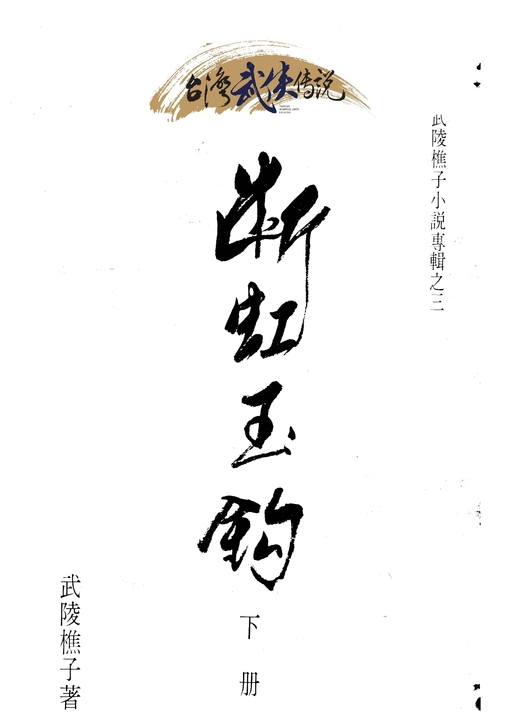 台灣武俠傳說
武陵樵子小説專輯之三
断虹玉鈎
下冊
武陵樵子著